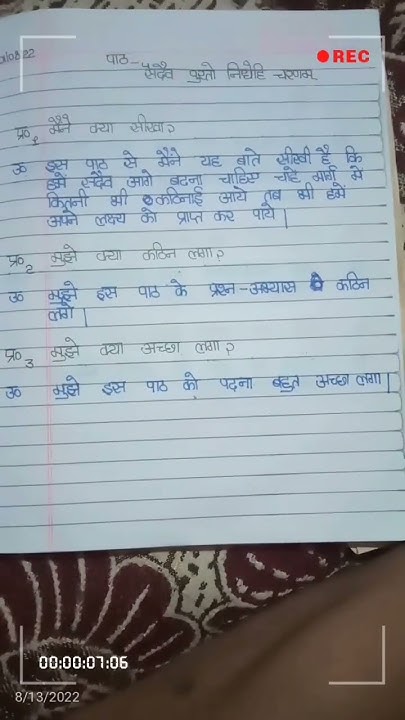 01/08/22
REC
पाठ-
सदैव पुरतो निधेहि चरणम्
प्र०1 मैने क्या सीखा?
उ० इस पाठ से मैने यह बाते सीखी है कि
हमे सदैव आगे बढना चाहिए चाहे मार्ग मे
कितनी भी कठिनाई आये तब भी हमे
अपने लक्ष्य को प्राप्त कर पाये|
प्र०2 मुझे क्या कठिन लगा?
उ० मुझे इस पाठ के प्रश्न-अभ्यास कठिन
लगे|
प्र०3 मुझे क्या अच्छा लगा?
उ० मुझे इस पाठ को पढना बहुत अच्छा लगा|
00:00:07:06
8/13/2022